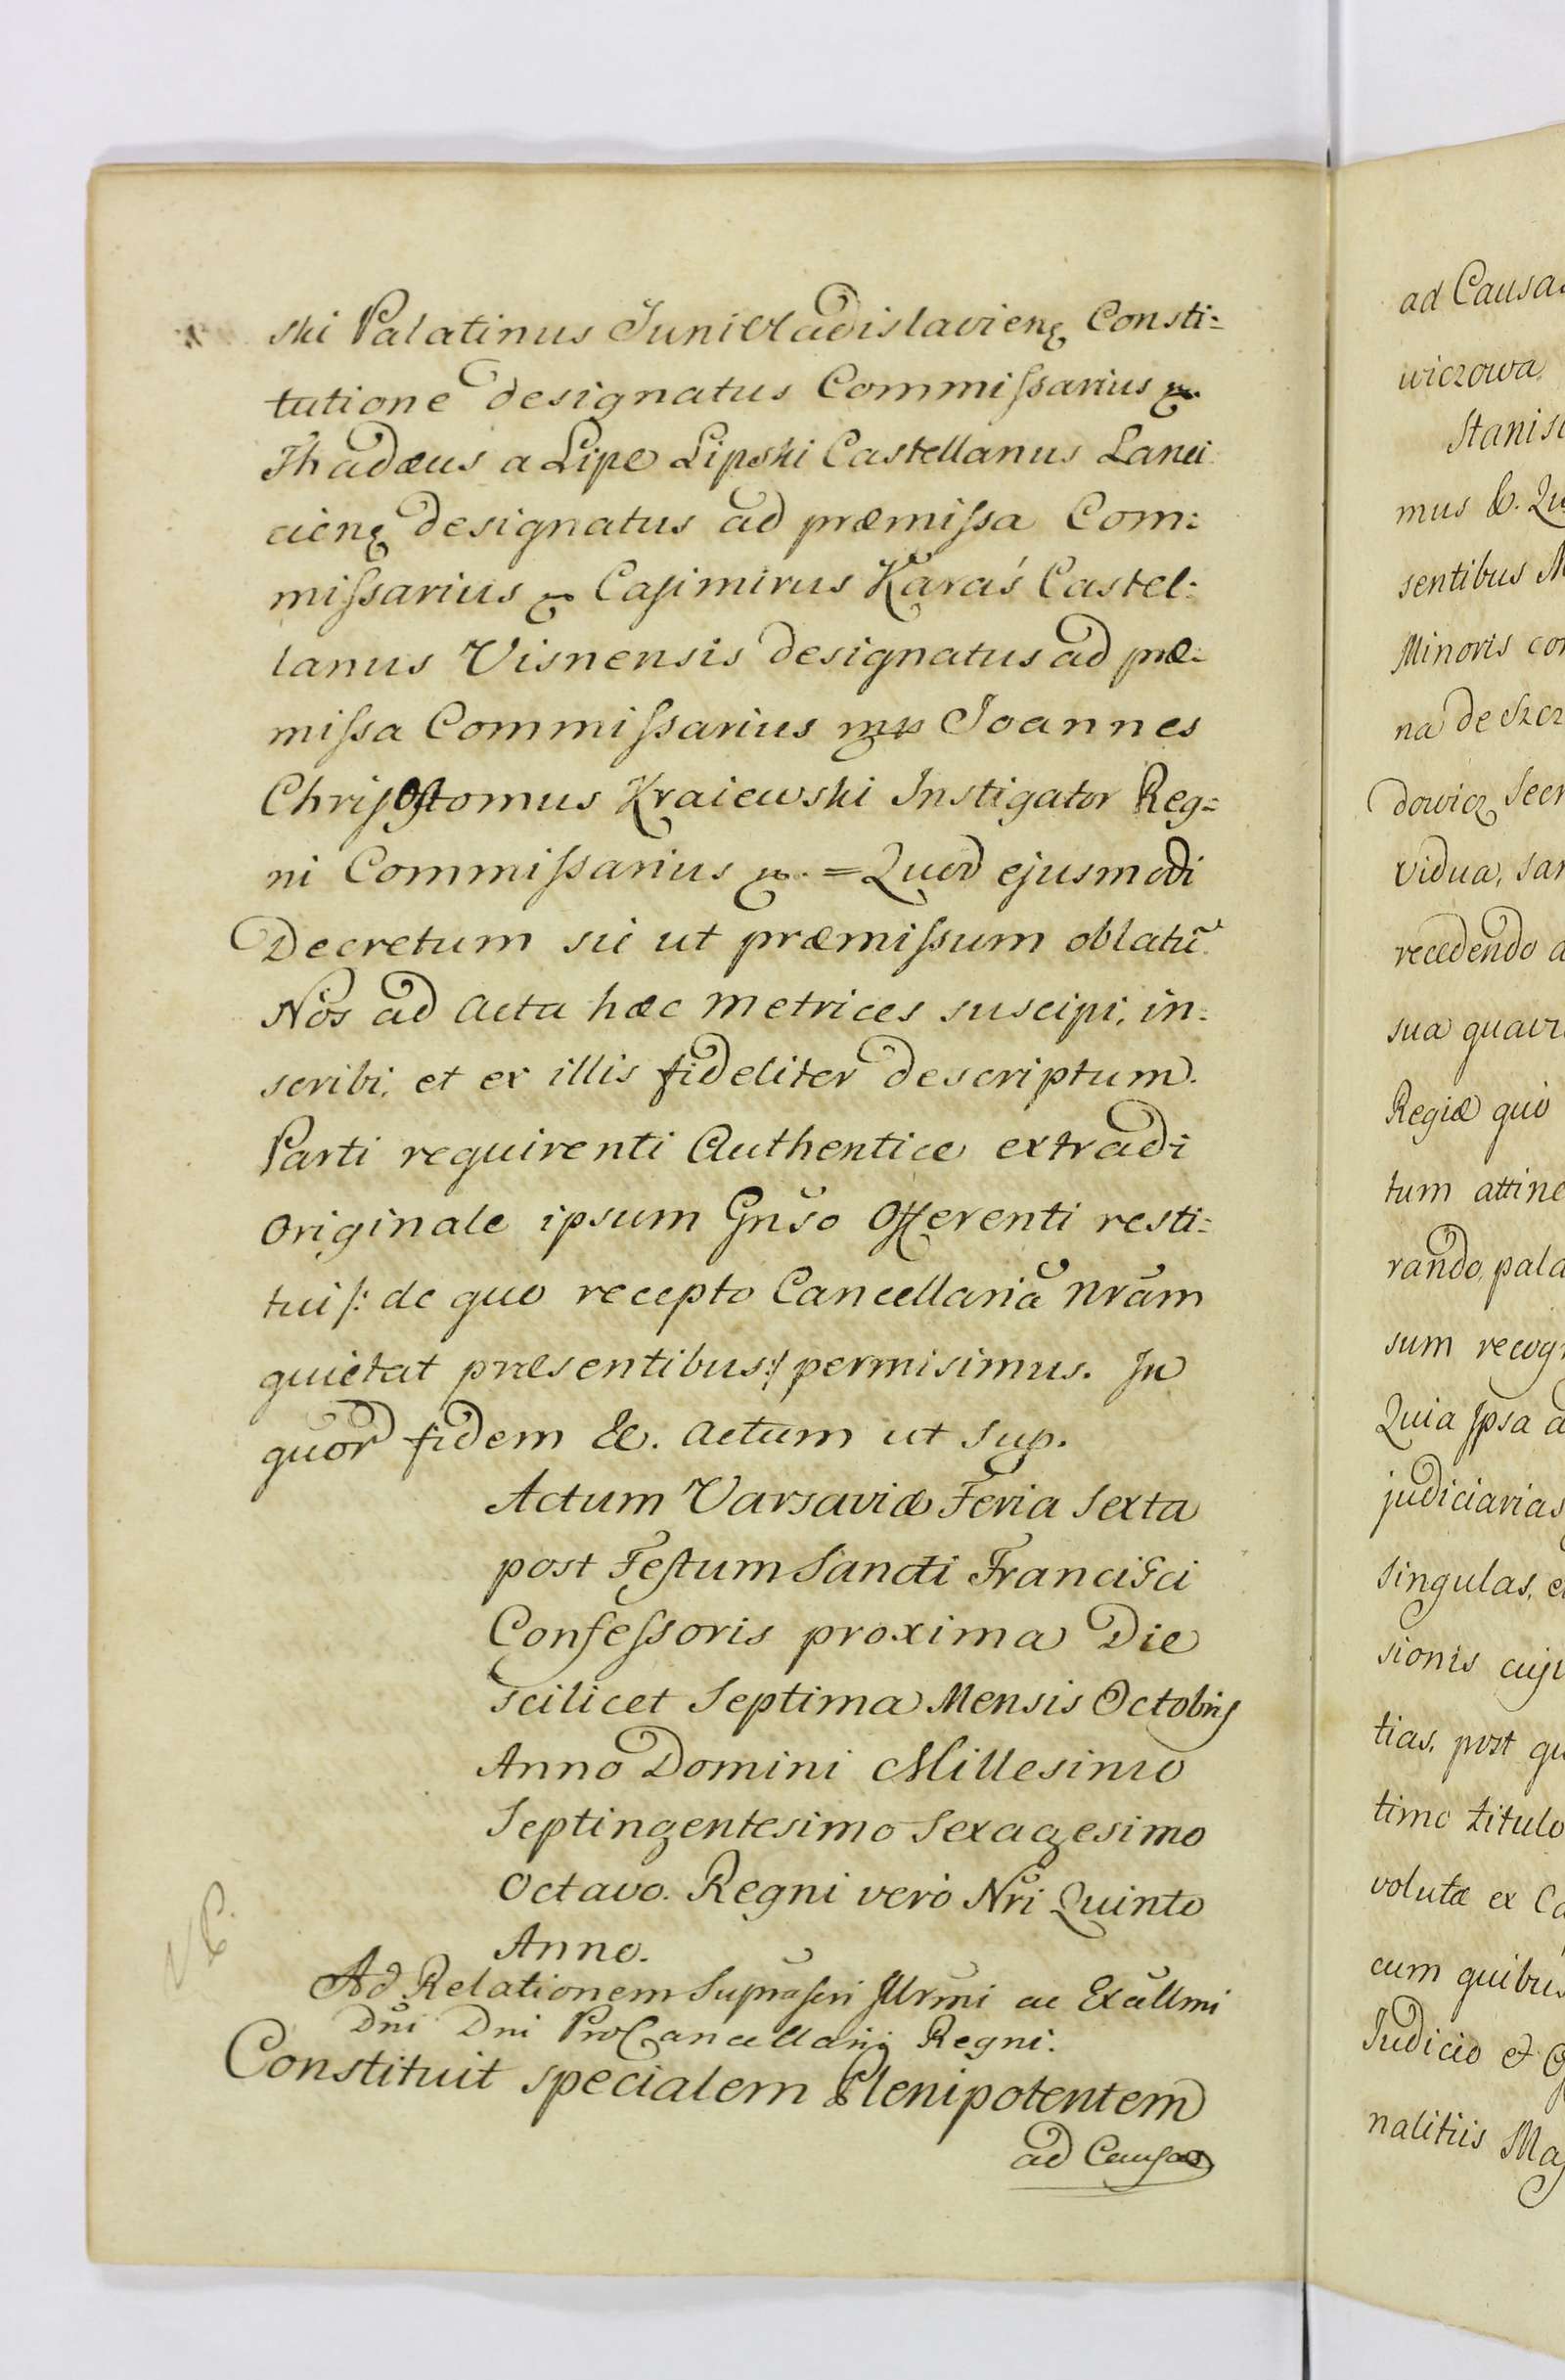 ski Palatinus Juni Vladislavienę Consti=
tutione designatus Commissarius
Thadæus a Lipe Lipski Castellanus Lanci
cienę designatus ad præmissa Com=
missarius Casimirus Karaś Castel=
lanus Visnensis designatus ad præ=
missa Commissarius mp Joannes
Chrisostomus Kraiewski Instigator Reg=
ni Commissarius = Quod ejusmodi
Decretum sic ut præmissum oblatū
Nos ad Acta hæc Metrices suscipi, in=
scribi, et ex illis fideliter descriptum.
Parti requirenti Authentice extradi
Originale ipsum Gnso Offerenti resti=
tui /: de quo recepto Cancellariā Nram
quietat præsentibus :/ permisimus. In
quor fidem &. Actum ut sup.
Actum Varsaviæ Feria Sexta
post Festum Sancti Francisci
Confessoris proxima Die
scilicet Septima Mensis Octobris
Anno Domini Millesimo
Septingentesimo Sexagesimo
Octavo. Regni vero Nri Quinto
Anno.
Ad Relationem Suprascri Illrmi ac Excellmi
Dni Dni ProCancellarij Regni.
Constituit specialem Plenipotentem
ad Causas
ad Causa
wiczowa
Stanis
mus &. Qu
sentibus M
Minoris co
na de Szcz
dowicz Secr
vidua, sa
recedendo a
sua quavi
Regiæ quo
tum attine
rando, pala
sum recog
Quia Ipsa a
judiciarias
singulas, e
sionis cuju
tias, post qu
timo titulo
volutæ ex Ca
cum quibus
Judicio et O
nalitiis Maj